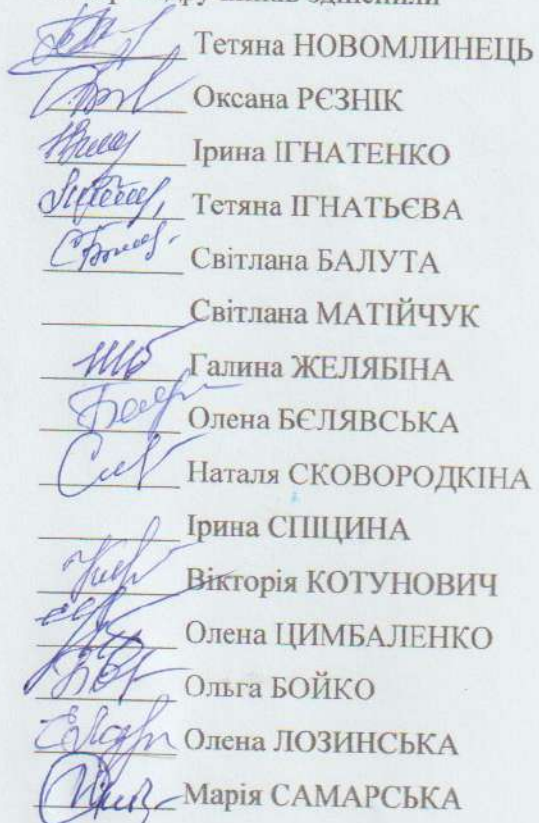 здійснили
Тетяна НОВОМЛИНЕЦЬ
Оксана РЄЗНІК
Ірина ІГНАТЕНКО
Тетяна ІГНАТЬЄВА
Світлана БАЛУТА
Світлана МАТІЙЧУК
Галина ЖЕЛЯБІНА
Олена БЄЛЯВСЬКА
Наталя СКОВОРОДКІНА
Ірина СПІЦИНА
Вікторія КОТУНОВИЧ
Олена ЦИМБАЛЕНКО
Ольга БОЙКО
Олена ЛОЗИНСЬКА
Марія САМАРСЬКА